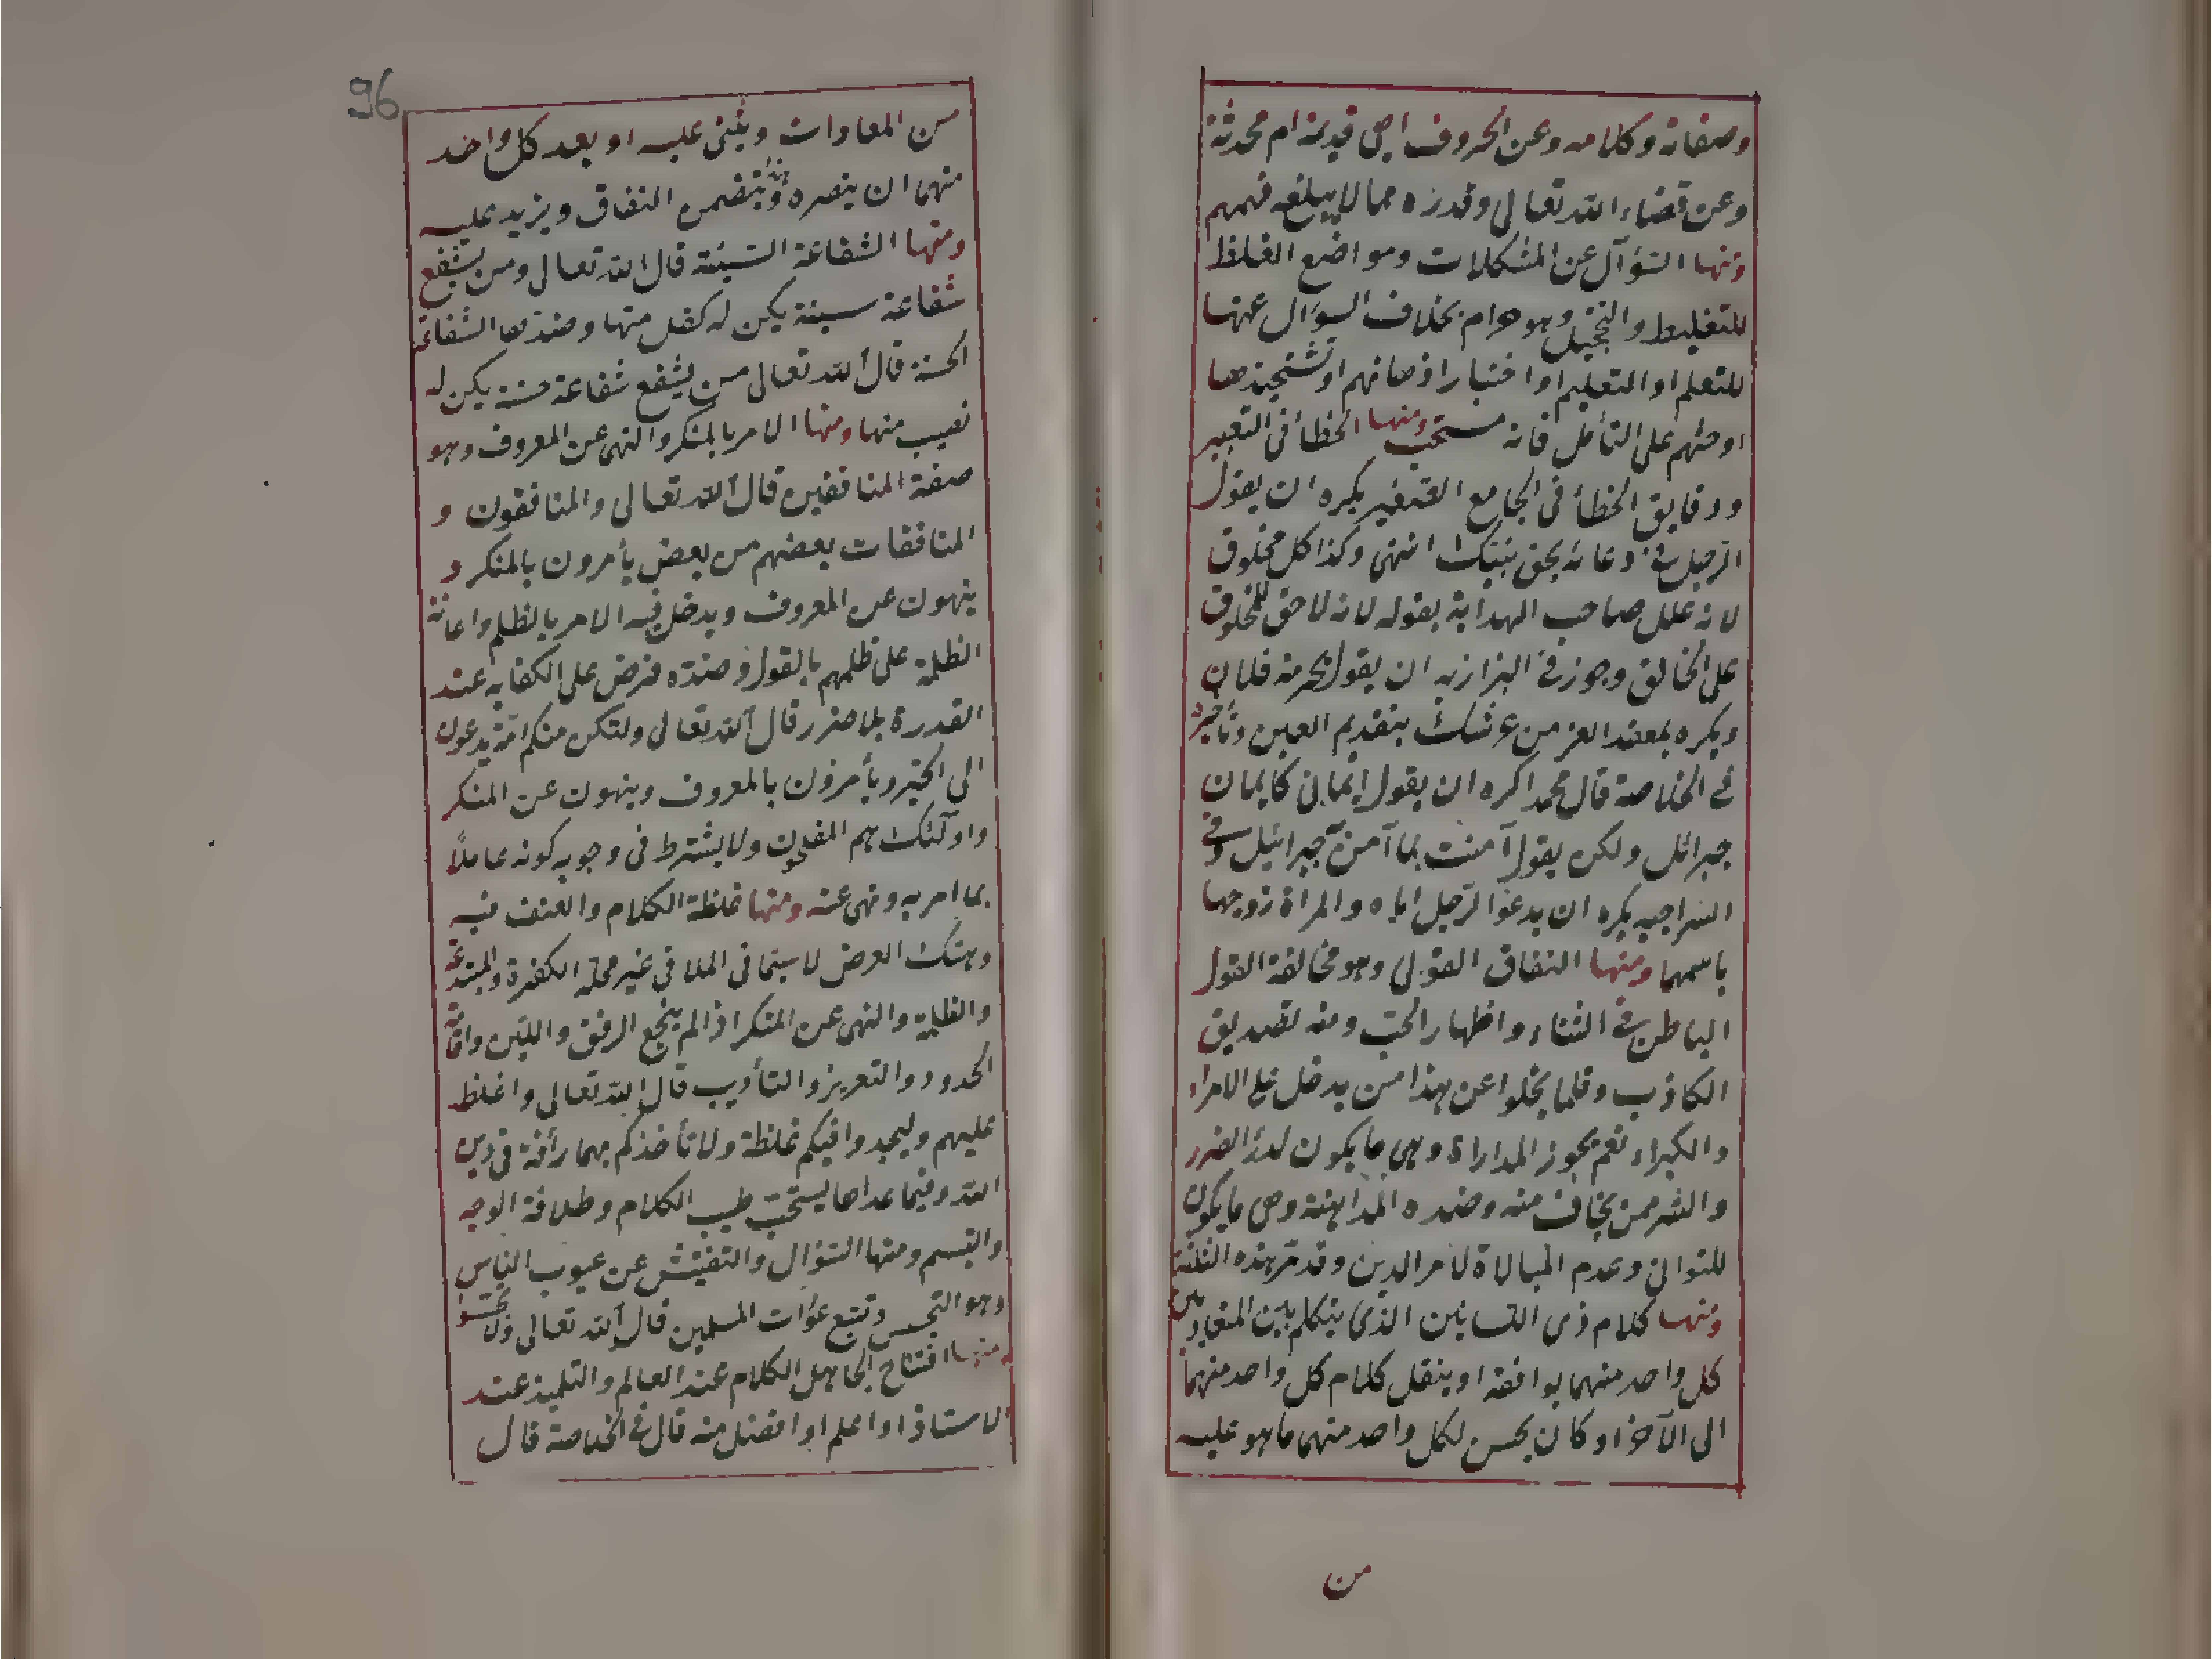 وصفاته وكلامه وعن الحروف اهى قديمة ام محدثة
وعن قضاء الله تعالى وقدره مما لا يبلغه فهمهم
ومنها السؤآل عن المشكلات ومواضع الغلط
للتغليط والتخجيل وهو حرام بخلاف السؤال عنها
للتعلم او التعليم او اختبار اذهانهم او تشحيذها
او حثهم على التأمل فانه مستحب ومنها الخطأ فى التعبير
ودقايق الخطأ فى الجامع الصغير يكره ان يقول
الرجل فى دعائه بحق نبيك انتهى وكذا كل مخلوق
لانه علل صاحب الهداية بقوله لانه لا حق للمخلوق
على الخالق وجوز فى البزازيه ان يقول بحرمة فلان
ويكره بمعقد العز من عرشك بتقديم العين وتأخيره
فى الخلاصة قال محمد اكره ان يقول ايمانى كايمان
جبرائل ولكن يقول آمنت بما آمن جبرائيل وفى
السراجيه يكره ان يدعو الرجل اباه والمرأة زوجها
باسمهما ومنها النفاق القولى وهو مخالفة القول
الباطن فى الثناء واظهار الحب ومنه تصديق
الكاذب وقلما يخلوا عن هذا من يدخل على الامراء
والكبراء نعم يجوز المداراة وهى ما يكون لدرأ الضرر
والشر ممن يخاف منه وضده المداهنة وهى ما يكون
للتوانى وعدم المبالاة لأمر الدين وقد مر هذه الثلثة
ومنها كلام ذى اللسانين الذى يتكلم بين المتعاديين
كل واحد منهما يوافقه او ينقل كلام كل واحد منهما
الى الآخر او كان يحسن لكل واحد منهما ما هو عليه
من
96
من المعادات ويثنى عليه او يعد كل واحد
منهما ان ينصره وانه يتضمن النفاق ويزيد عليه
ومنها الشفاعة السيئة قال الله تعالى ومن يشفع
شفاعة سيئة يكن له كفل منها وضدها الشفاعة
الحسنة قال الله تعالى من يشفع شفاعة حسنة يكن له
نصيب منها ومنها الامر بالمنكر والنهى عن المعروف وهو
صفة المنافقين قال الله تعالى والمنافقون و
المنافقات بعضهم من بعض يأمرون بالمنكر و
ينهون عن المعروف ويدخل فيه الامر بالظلم واعانة
الظلمة على ظلمهم بالقول وضده فرض على الكفايه عند
القدرة بلا ضرر قال الله تعالى ولتكن منكم امة يدعون
الى الخير ويأمرون بالمعروف وينهون عن المنكر
واولئك هم المفلحون ولا يشترط فى وجوبه كونه عاملا
بما امر به ونهى عنه ومنها غلظة الكلام والعنف فيه
وهتك العرض لا سيما فى الملا فى غير محله الكفرة والمبتدعة
والظلمة والنهى عن المنكر اذا لم ينجع الرفق واللين واقامة
الحدود والتعزيز والتأديب قال الله تعالى واغلظ
عليهم وليجدوا فيكم غلظة ولا تأخذكم بهما رأفة فى دين
الله وفيما عداها يستحب طيب الكلام وطلاقة الوجه
والتبسم ومنها السؤال والتفتيش عن عيوب الناس
وهو التجسس وتتبع عورات المسلمين قال الله تعالى ولا تجسسوا
ومنها افتتاح الجاهل الكلام عند العالم والتلميذ عند
الاستاذ او اعلم او افضل منه قال فى الخلاصة قال